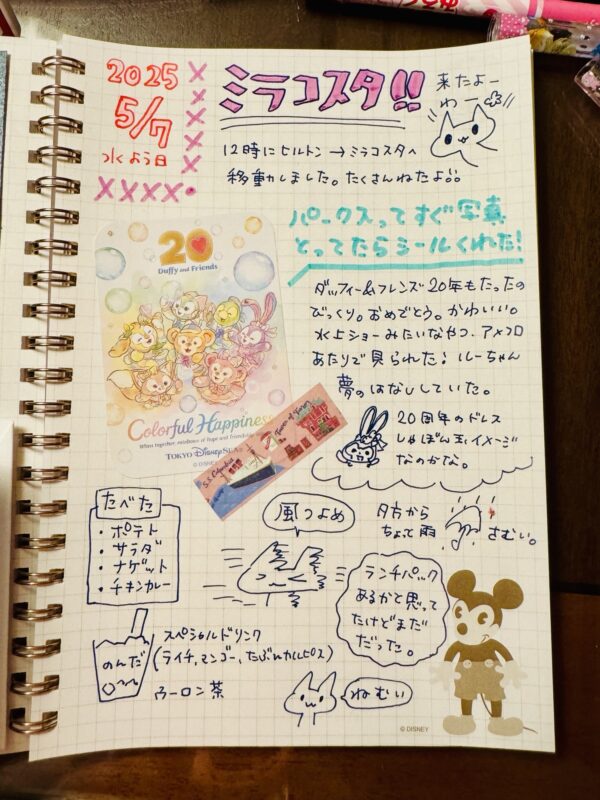 2025
5/7
水よう日
XXXX.
ミラコスタ!!
来たよー
わー
12時にヒルトン→ミラコスタへ
移動しました。たくさんねたよ!!
パークスってすぐ写真
とってたらシールくれた!
20
Duffy and Friends
Colorful Happiness
When together, rainbows of hope and friendship
TOKYO DISNEY SEA
© DISNEY
ダッフィー&フレンズ20年もたったの
びっくり。おめでとう。かわいい。
水上ショーみたいなやつ、アメフロ
あたりで見られた!ルーちゃん
夢のはなししていた。
S.S. Columbia
Tower of Terror
20周年のドレス
しゃぼん玉イメージ
なのかな。
たべた
・ポテト
・サラダ
・ナゲット
・チキンカレー
風つよめ
夕方から
ちょって雨
さむい。
ランチパック
あるかと思って
たけどまだ
だった。
のんだ
スペシャルドリンク
(ライチ,マンゴー,たぶんカルピス)
ウーロン茶
ねむい
© DISNEY